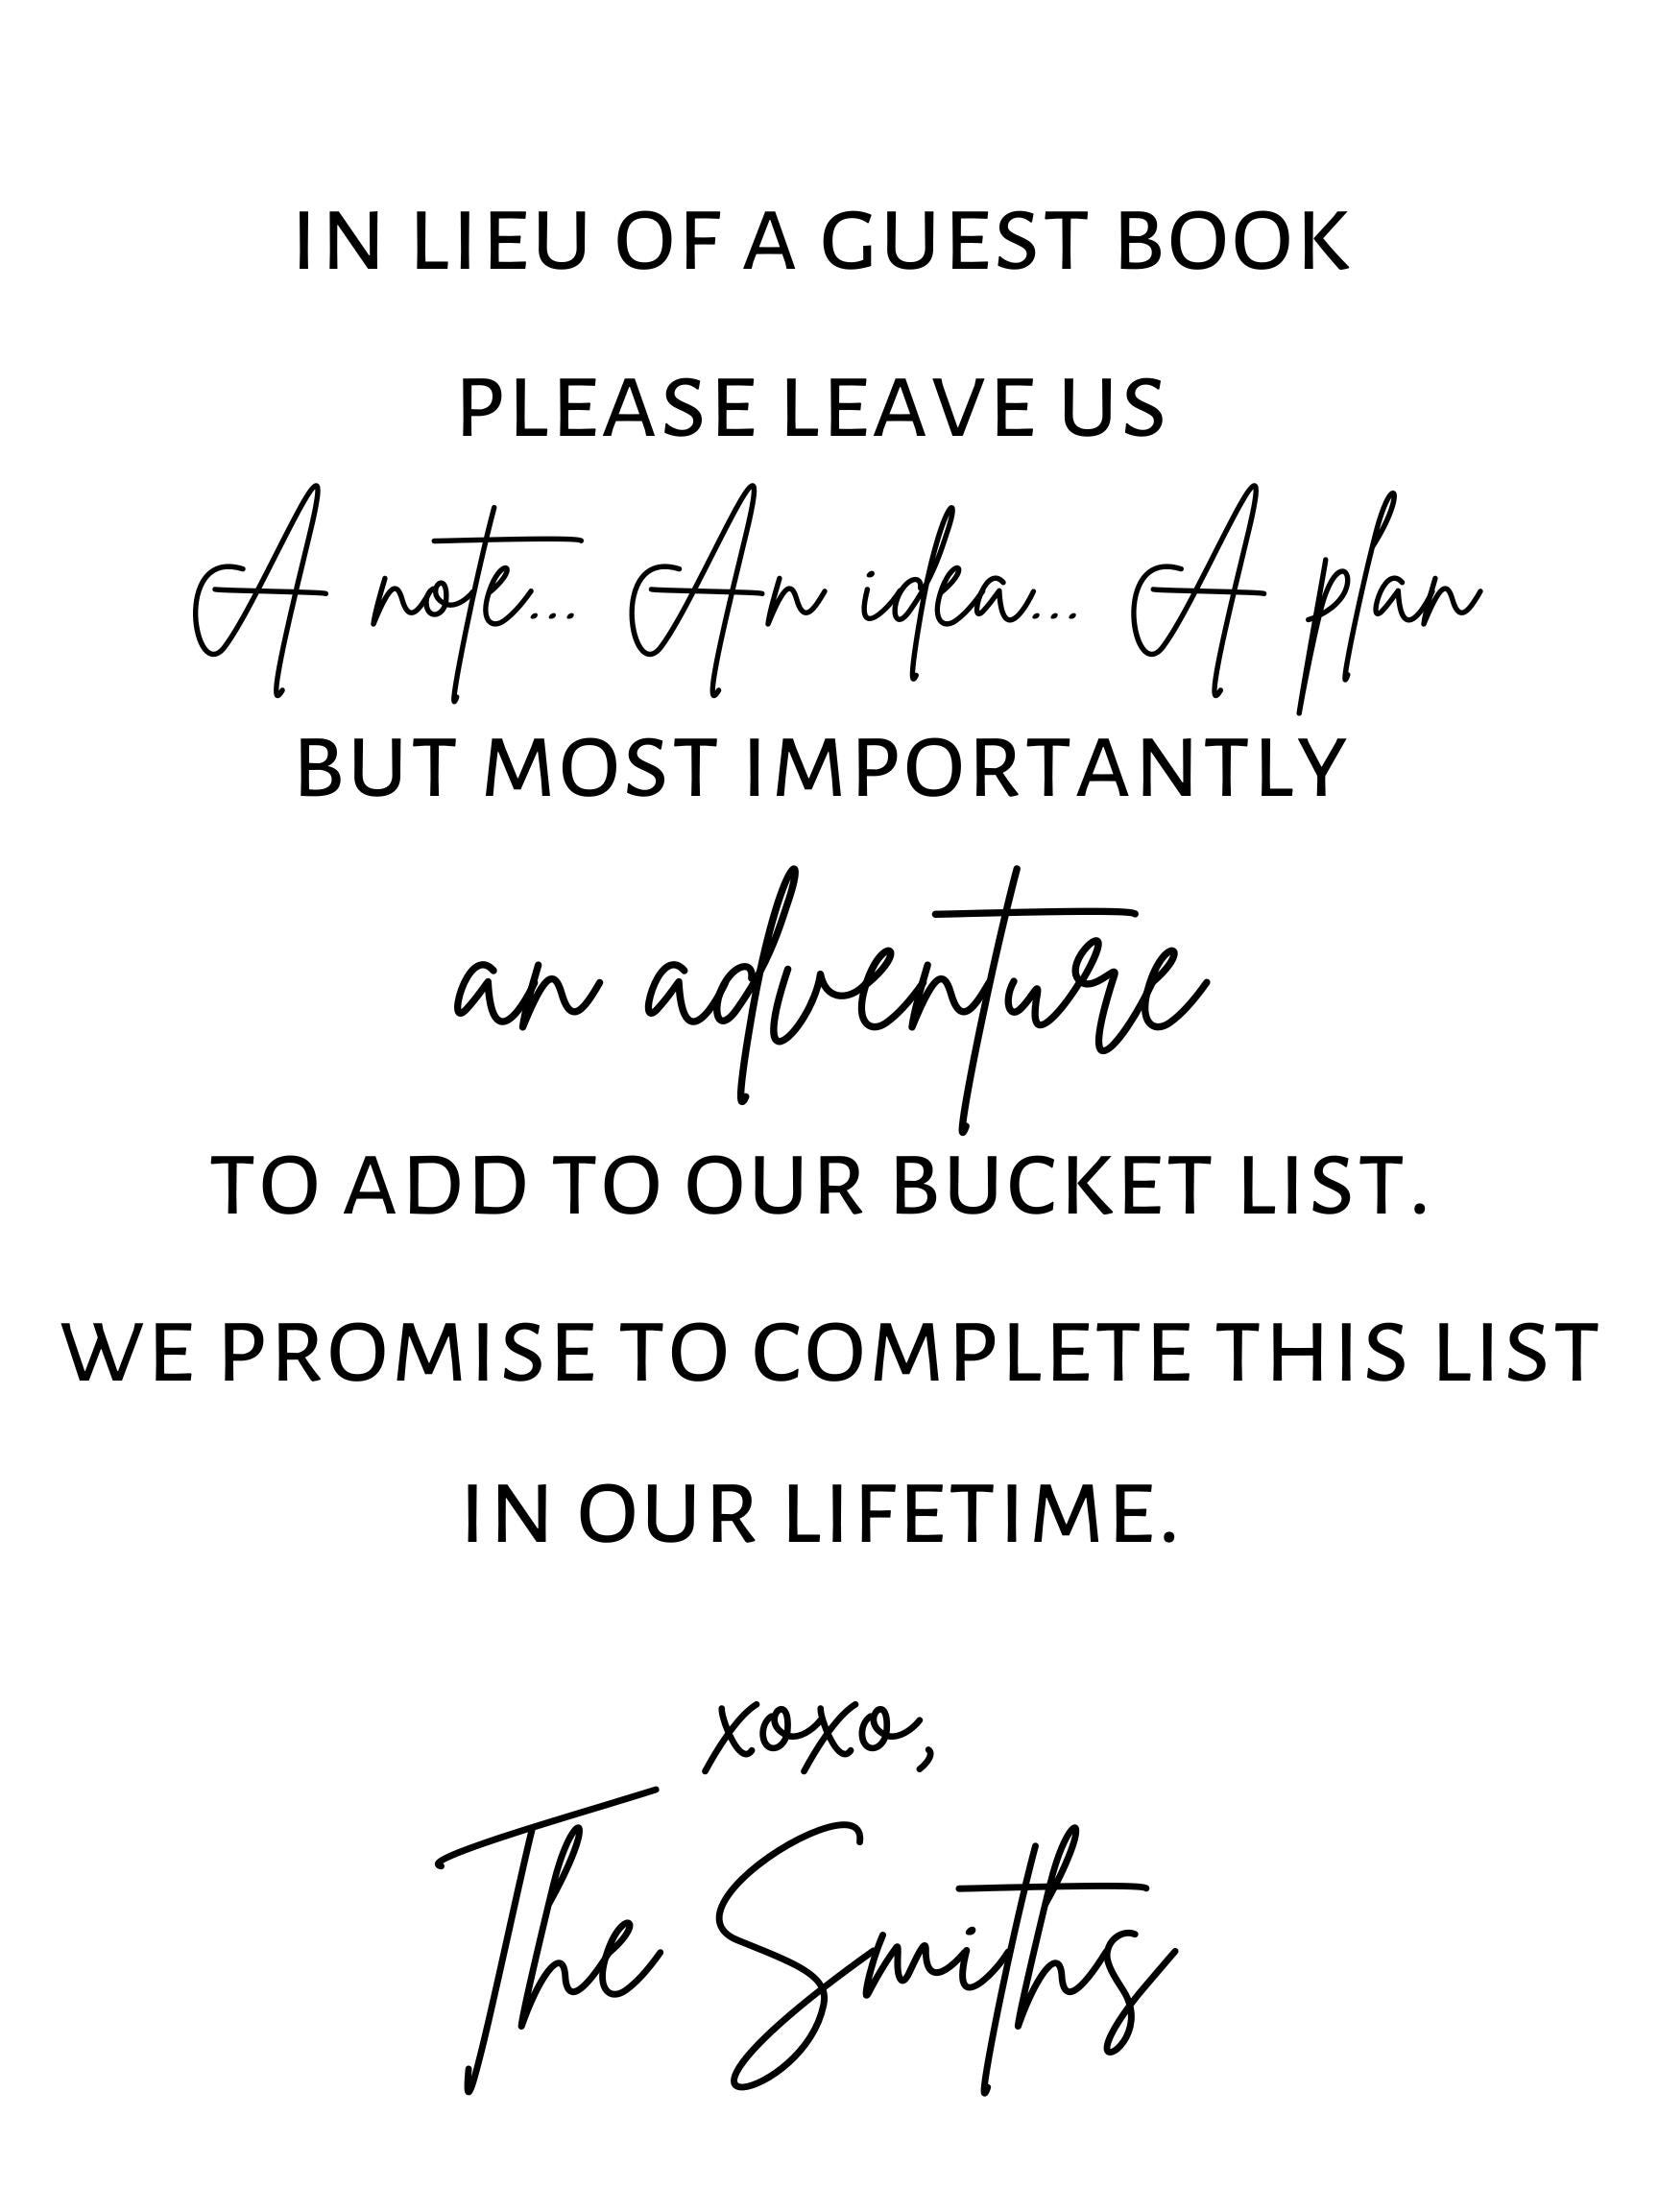 IN LIEU OF A GUEST BOOK
PLEASE LEAVE US
A note... An idea... A plan
BUT MOST IMPORTANTLY
an adventure
TO ADD TO OUR BUCKET LIST.
WE PROMISE TO COMPLETE THIS LIST
IN OUR LIFETIME.
xoxo,
The Smiths